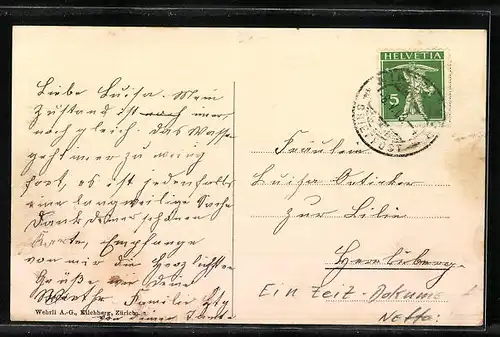 Liebe Luisa. Mein
Zustand ist noch immer
noch gleich. Das Wasser
geht immer zu wenig
fort, es ist jedenfalls
eine langweilige Sache
Dank deiner schönen
Karte, Empfange
von mir die herzlichsten
Grüße wie deine
Familie
von deiner Tante
Wehrli A.-G., Kilchberg, Zürich.
HELVETIA
5
Fräulein
Luisa
zur Lilie
Herrliberg
Ein Zeit-Dokument
Nette: